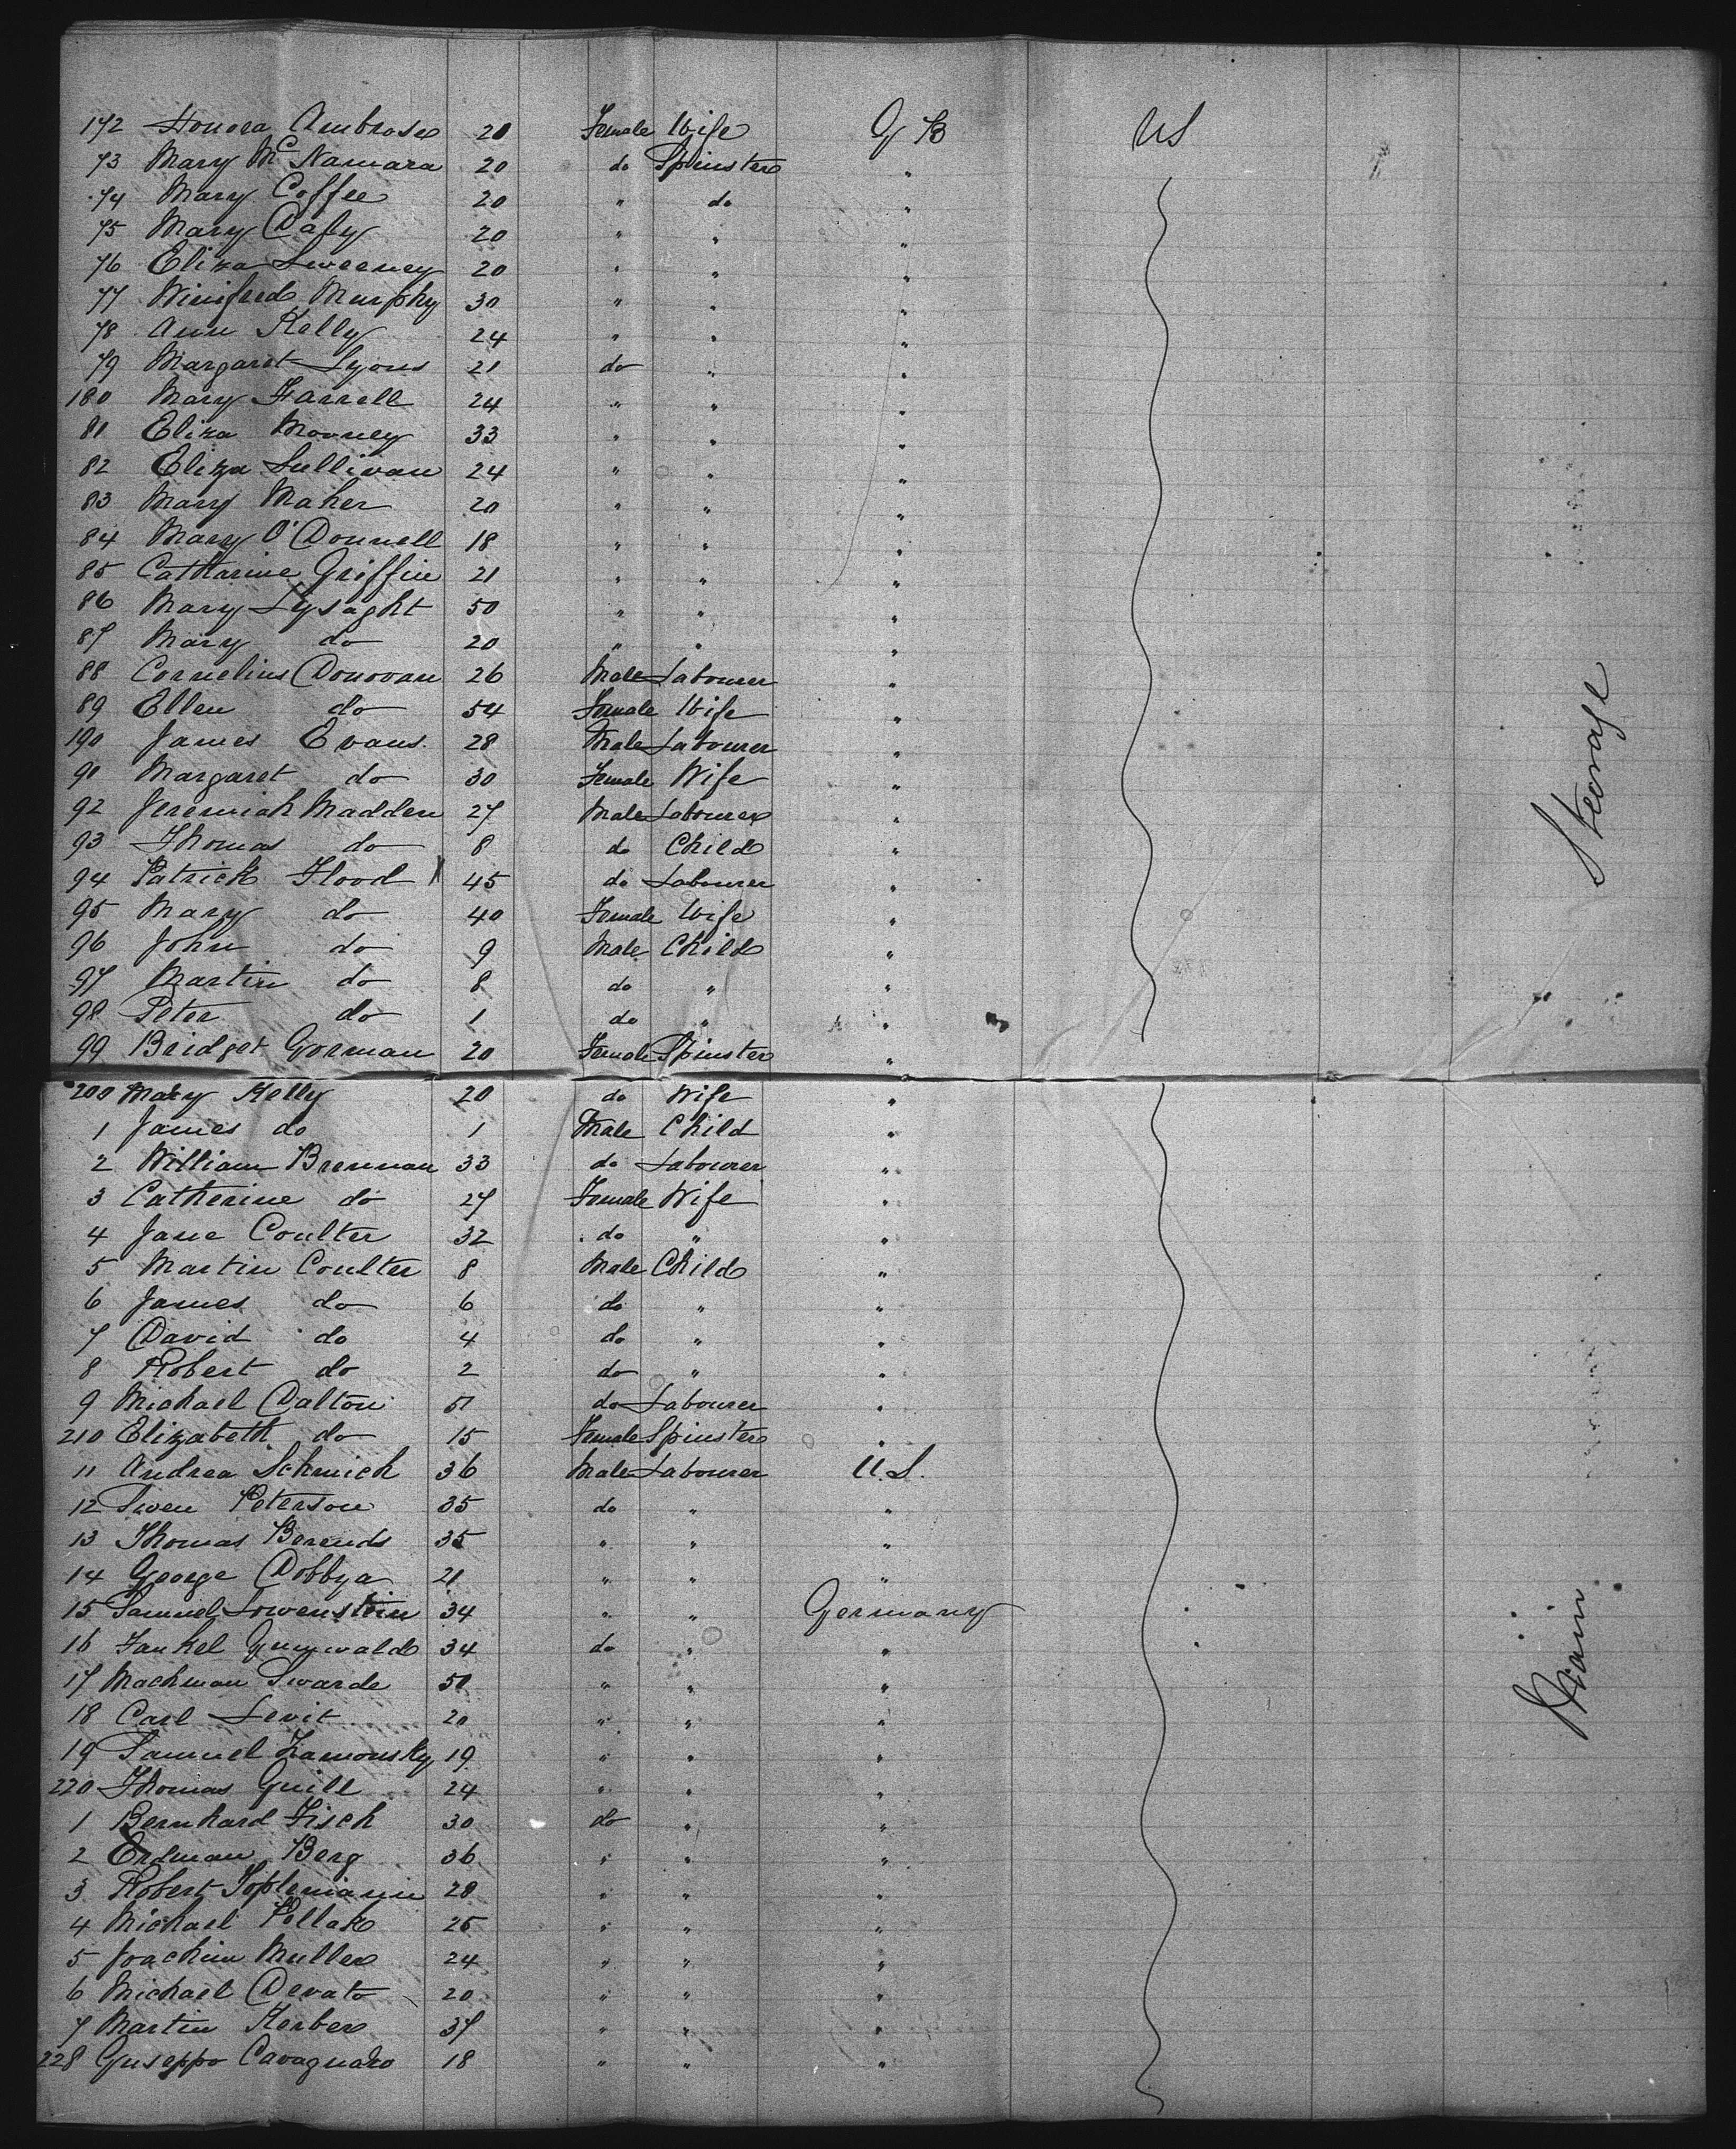 172 Honora Ambrose 20 Female Wife G B US
73 Mary McNamara 20 do Spinster "
74 Mary Coffee 20 " do "
75 Mary Dafy 20 " " "
76 Eliza Sweeney 20 " " "
77 Winifred Murphy 30 " " "
78 Ann Kelly 24 " " "
79 Margaret Lyons 21 do " "
180 Mary Farrell 24 " " "
81 Eliza Mooney 33 " " "
82 Eliza Sullivan 24 " " "
83 Mary Maher 20 " " "
84 Mary O'Donnell 18 " " "
85 Catharine Griffin 21 " " "
86 Mary Lysaght 50 " " "
87 Mary do 20 " " "
88 Cornelius Donovan 26 Male Labourer "
89 Ellen do 54 Female Wife "
190 James Evans 28 Male Labourer "
91 Margaret do 30 Female Wife "
92 Jeremiah Madden 27 Male Labourer "
93 Thomas do 8 do Child "
94 Patrick Flood 45 do Labourer "
95 Mary do 40 Female Wife "
96 John do 9 Male Child "
97 Martin do 8 do " "
98 Peter do 1 do " "
99 Bridget Gorman 20 Female Spinster "
Steerage
200 Mary Kelly 20 do Wife "
1 James do 1 Male Child "
2 William Brennan 33 do Labourer "
3 Catherine do 27 Female Wife "
4 Jane Coulter 32 do " "
5 Martin Coulter 8 Male Child "
6 James do 6 do " "
7 David do 4 do " "
8 Robert do 2 do " "
9 Michael Dalton 51 do Labourer "
210 Elizabeth do 15 Female Spinster "
11 Andrea Schmich 36 Male Labourer U.S.
12 Swen Peterson 35 do " "
13 Thomas Berends 35 " " "
14 George Dobbya 21 " " "
15 Samuel Lowenstein 34 " " Germany
16 Jankel Grunwald 34 do " "
17 Machman Swarde 50 " " "
18 Carl Levit 20 " " "
19 Samuel Zamonsky 19 " " "
220 Thomas Quill 24 " " "
1 Bernhard Fisch 30 do " "
2 Erdman Berg 36 " " "
3 Robert 28 " " "
4 Michael Pollak 25 " " "
5 Joachim Muller 24 " " "
6 Michael Devato 20 " " "
7 Martin Kerber 37 " " "
228 Guseppo Cavagnaro 18 " " "
Main